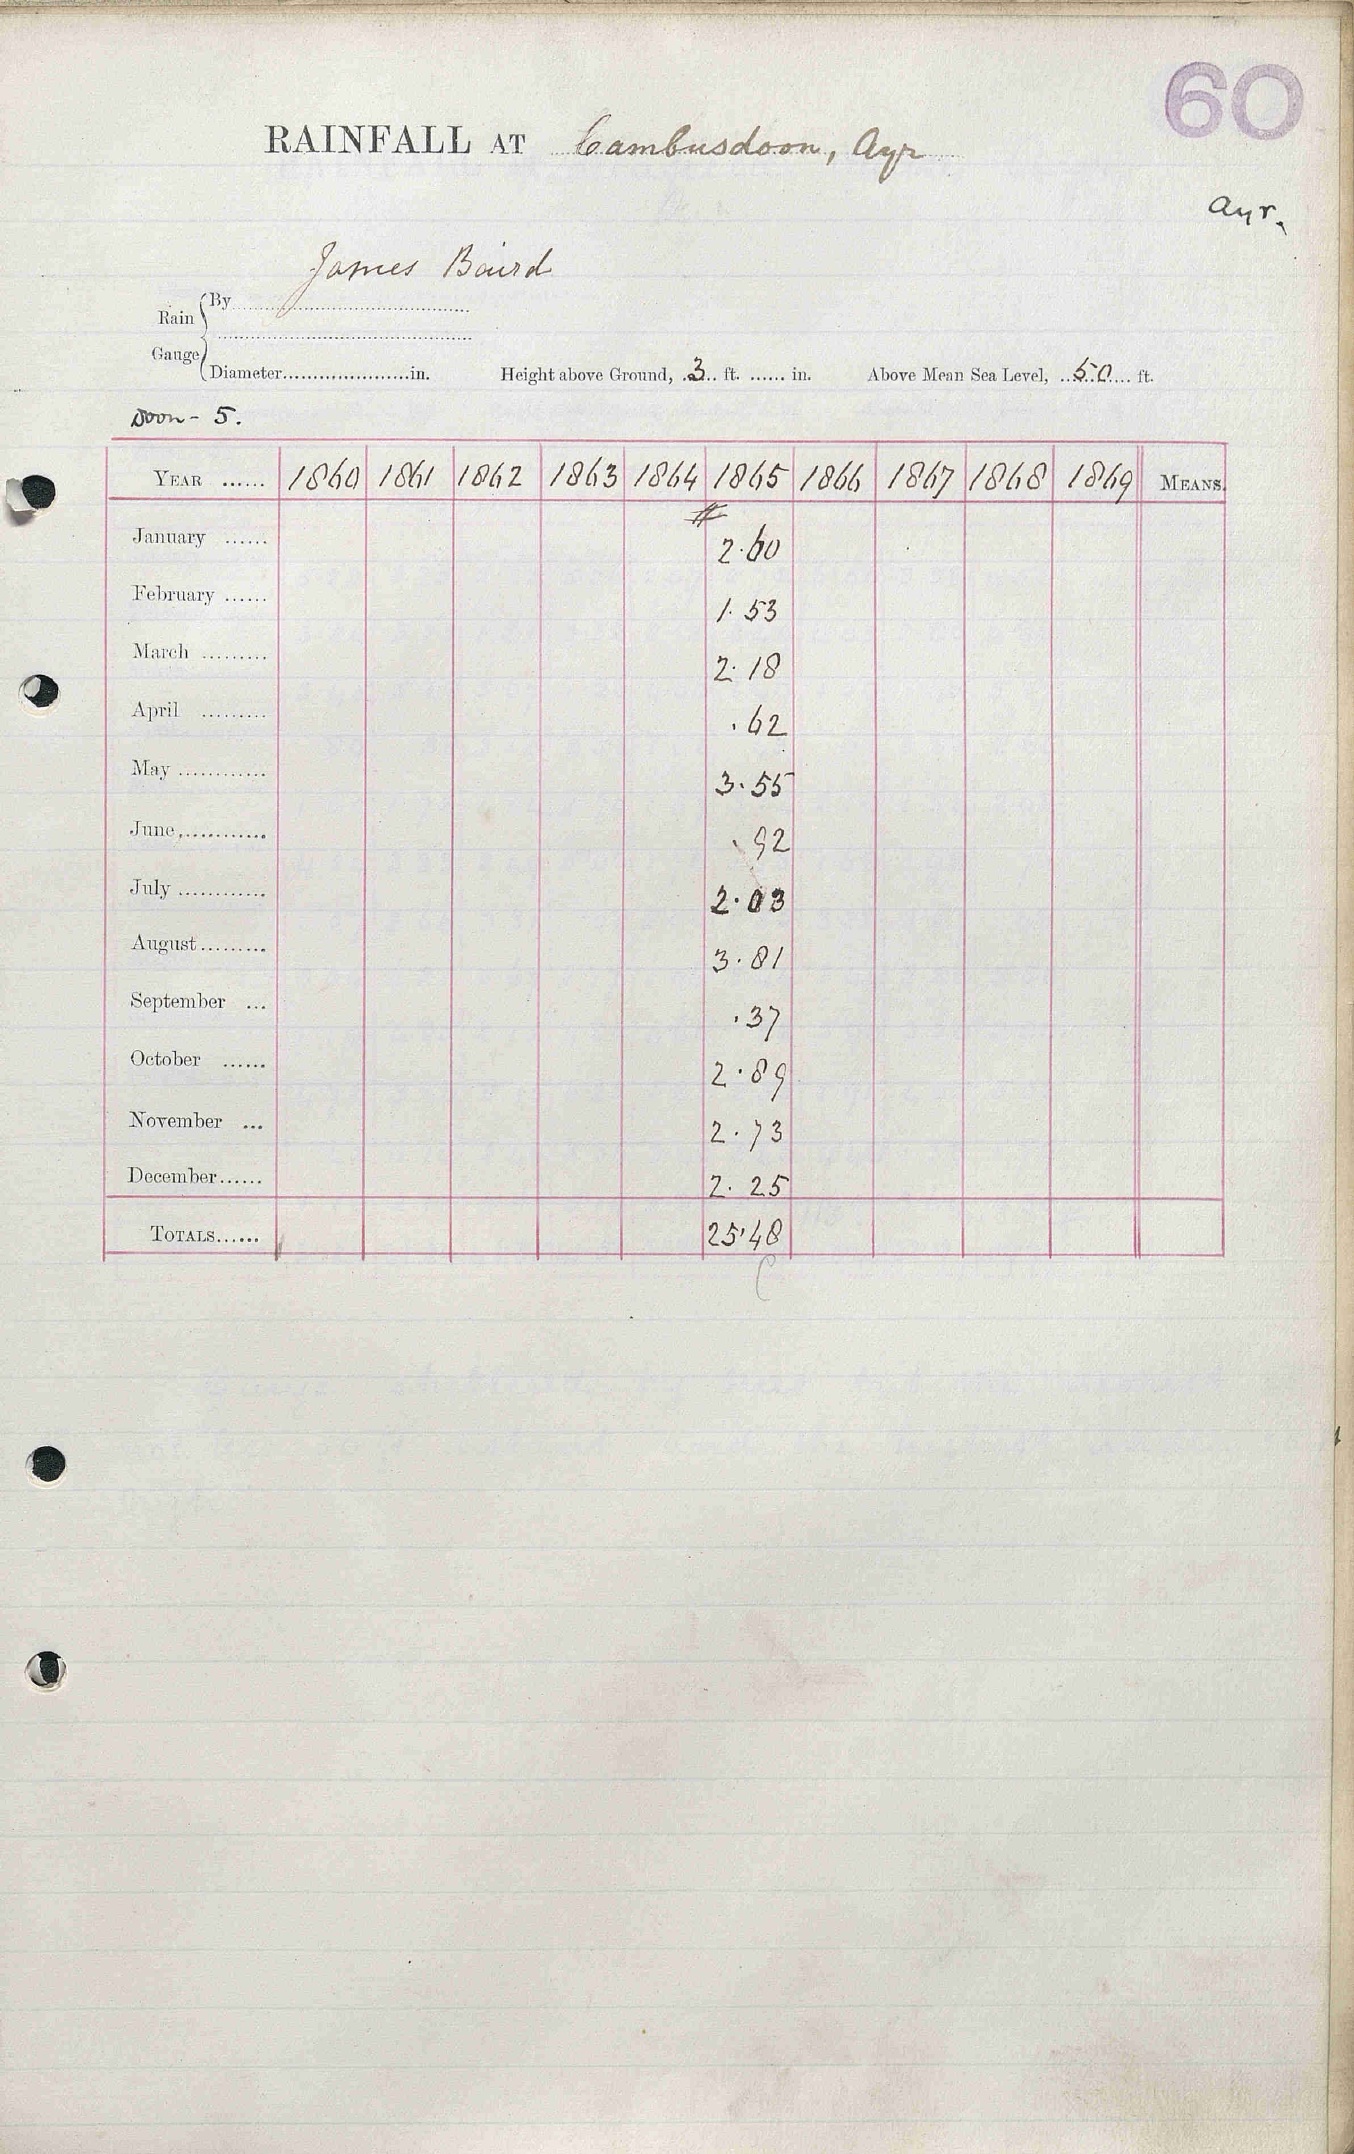 60
RAINFALL AT Cambusdoon, Ayr
Ayr.
James Baird
Rain Gauge
By
Diameter.....................in. Height above Ground, 3 ft. ...... in. Above Mean Sea Level, 50 ft.
Doon - 5.
YEAR ...... 1860 1861 1862 1863 1864 1865 1866 1867 1868 1869 MEANS.
#
January ...... 2.60
February ...... 1.53
March ......... 2.18
April ......... .62
May ............ 3.55
June ............ .92
July ............ 2.03
August ......... 3.81
September ... .37
October ...... 2.89
November ... 2.73
December ...... 2.25
TOTALS ...... 25.48
C